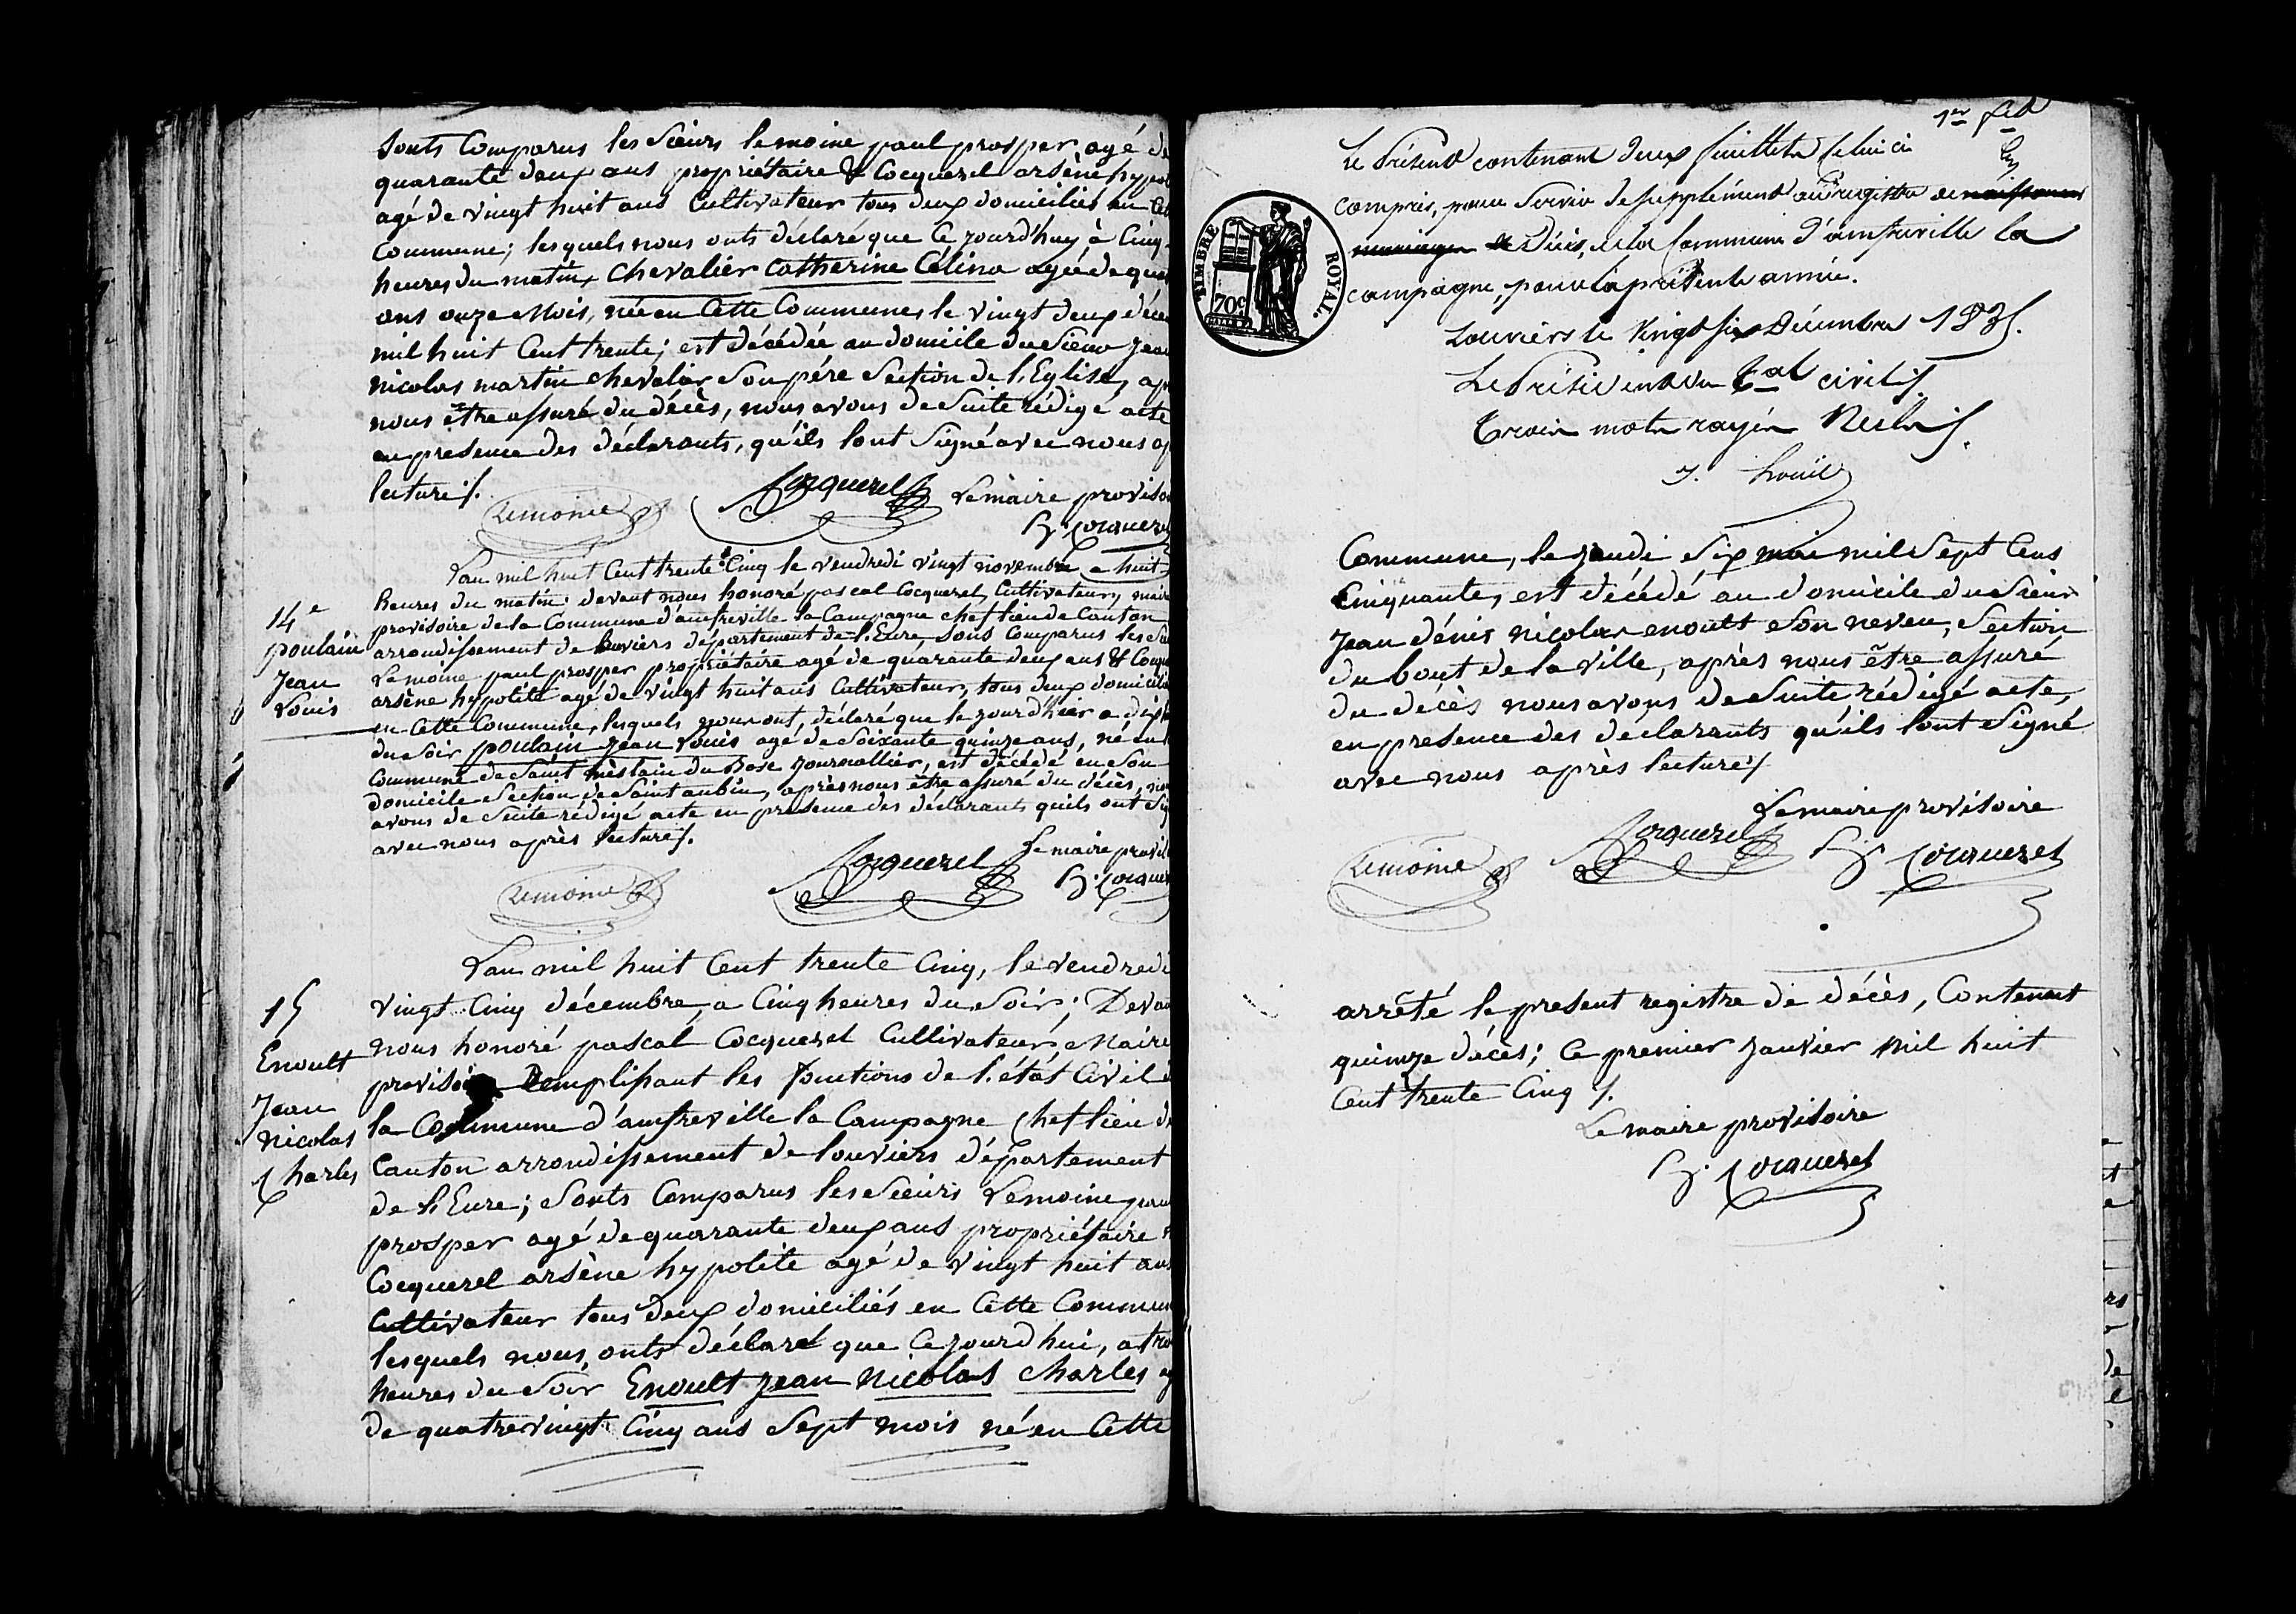 Sonts Comparus les Sieurs lemoine paul prosper agé de
quarante deux ans propriétaire & Cocquerel arsène hypol
agé de vingt huit ans Cultivateur tous deux domiciliés en Cet
Commune; lesquels nous onts déclaré que Ce jourd'huy à Cinq
heures du matin, Chevalier Catherine Célina agée de qua
ans onze Mois, née en Cette Commune, le vingt deux déce
mil huit Cent trente; est décédée au domicile du Sieur Jean
Nicolas martin chevalier Son pére Section de l'Eglise, ap
nous être assuré du décès, nous avons de Suite rédigé acte
en presence des déclarants, qu'ils l'ont Signé avec nous ap
lecture ./.
Lemoine Cocquerel Le maire proviso
h. Cocquerel
L'an mil huit Cent trente Cinq le vendredi vingt novembre a huit
14e
poulain
Jean
Louis
heures du matin devant nous honoré pascal Cocquerel, Cultivateur, maire
provisoire de la Commune d'amfreville la Campagne chef lieu de Canton
arrondissement de Louviers département de l'Eure Sont Comparus les Si
Lemoine paul prosper propriétaire agé de quarante deux ans & Cocqu
arsène hypolite agé de vingt huit ans Cultivateur, tous deux domicilié
en Cette Commune, lesquels nous ont, déclaré que le jourd'hier a dix h
du Soir poulain Jean Louis agé de Soixante quinze ans, né en l
Commune de Saint mèslain du Bosc Journallier, est décédé en Son
domicile Section de Saint aubin, après nous être assuré du décès, nou
avons de Suite rédigé acte en presence des déclarants qu'ils ont Sig
avec nous après lecture ./.
Lemoine Cocquerel Le maire provis
h. Cocquer
L'an mil huit Cent trente Cinq, le vendredi
15
Enoult
Jean
Nicolas
Charles
vingt Cinq décembre, a Cinq heures du Soir; Devan
nous honoré pascal Cocquerel Cultivateur, Maire
provisoi Remplissant les fonctions de l'état Civil d
la Commune d'amfreville la Campagne Chef lieu de
Canton arrondissement de Louviers département
de l'Eure; Sonts Comparus les Sieurs Lemoine pau
prosper agé de quarante deux ans propriétaire &
Cocquerel arsène hypolite agé de vingt huit ans
Cultivateur tous deux domiciliés en Cette Commun
lesquels nous onts déclaré que Ce jourd'hui, a tro
heures du Soir Enoult Jean Nicolas Charles ag
de quatrevingt Cinq ans Sept mois né en Cette
1er
Le Présent contenant deux feuillets celui ci
compris, pour Servir de supplément au registre de naissances
mariages & Décès, de la Commune d'amfreville la
campagne, pour la présente année.
Louviers le Vingt Six Décembre 1835.
Le Président du tal civil ./.
Trois mots rayés Nuls ./.
TIMBRE ROYAL.
70c
Commune, le jeudi Six mai mil Sept Cens
Cinquante, est décédé au domicile du Sieur
Jean dénis nicolas enoult Son neveu, Section
du bout de la ville, après nous être assuré
du décès nous avons de Suite, rédigé acte,
en presence des déclarants qu'ils l'ont Signé
avec nous après lecture ./.
Le maire provisoire
Lemoine Cocquerel h. Cocquerel
arrêté le present registre de décès, Contenent
quinze décès; Ce premier janvier mil huit
Cent trente Cinq ./.
Le maire provisoire
h. Cocquerel